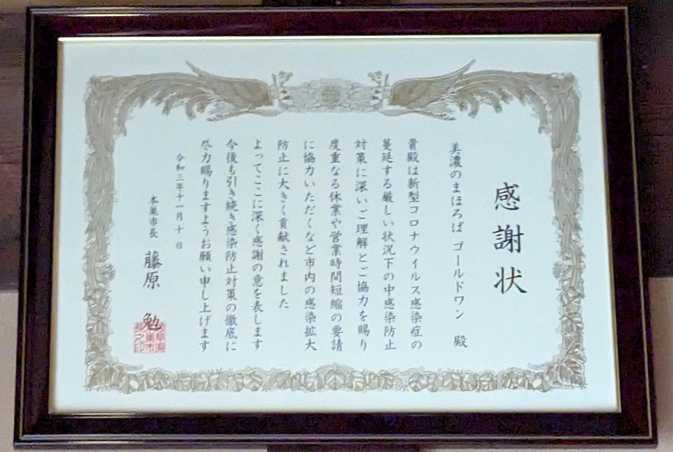 感謝状
美濃のまほろば ゴールドワン 殿
貴殿は新型コロナウイルス感染症の
蔓延する厳しい状況下の中感染防止
対策に深いご理解とご協力を賜り
度重なる休業や営業時間短縮の要請
に協力いただくなど市内の感染拡大
防止に大きく貢献されました
よってここに深く感謝の意を表します
今後も引き続き感染防止対策の徹底に
尽力賜りますようお願い申し上げます
令和三年十一月十日
本巣市長 藤原 勉